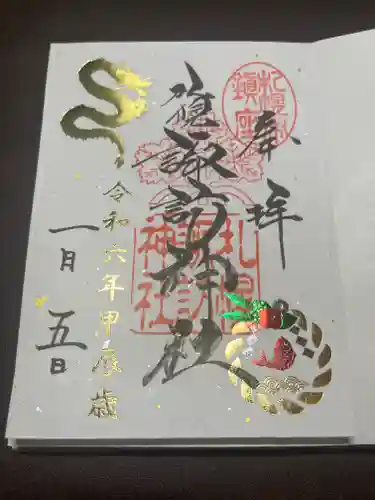 奉拝
札幌諏訪神社
令和六年甲辰歳
一月五日
札幌
鎮座
札幌
諏訪
神社